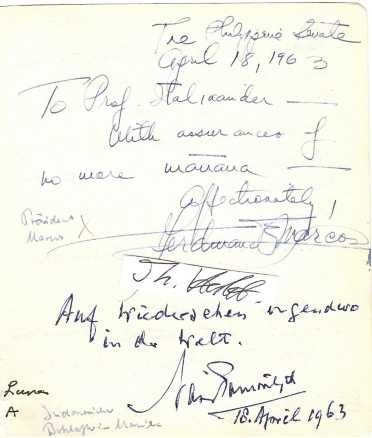 The Philippine Senate
April 18, 1963
To Prof. Stalixander —
With assurances of
no more mañana —
Affectionately!
Präsident
Marcos
Ferdinand E Marcos
Th.
Auf Wiedersehen irgendwo
in der Welt.
18. April 1963
Luna
A
Indonesien
Botschafter Manila